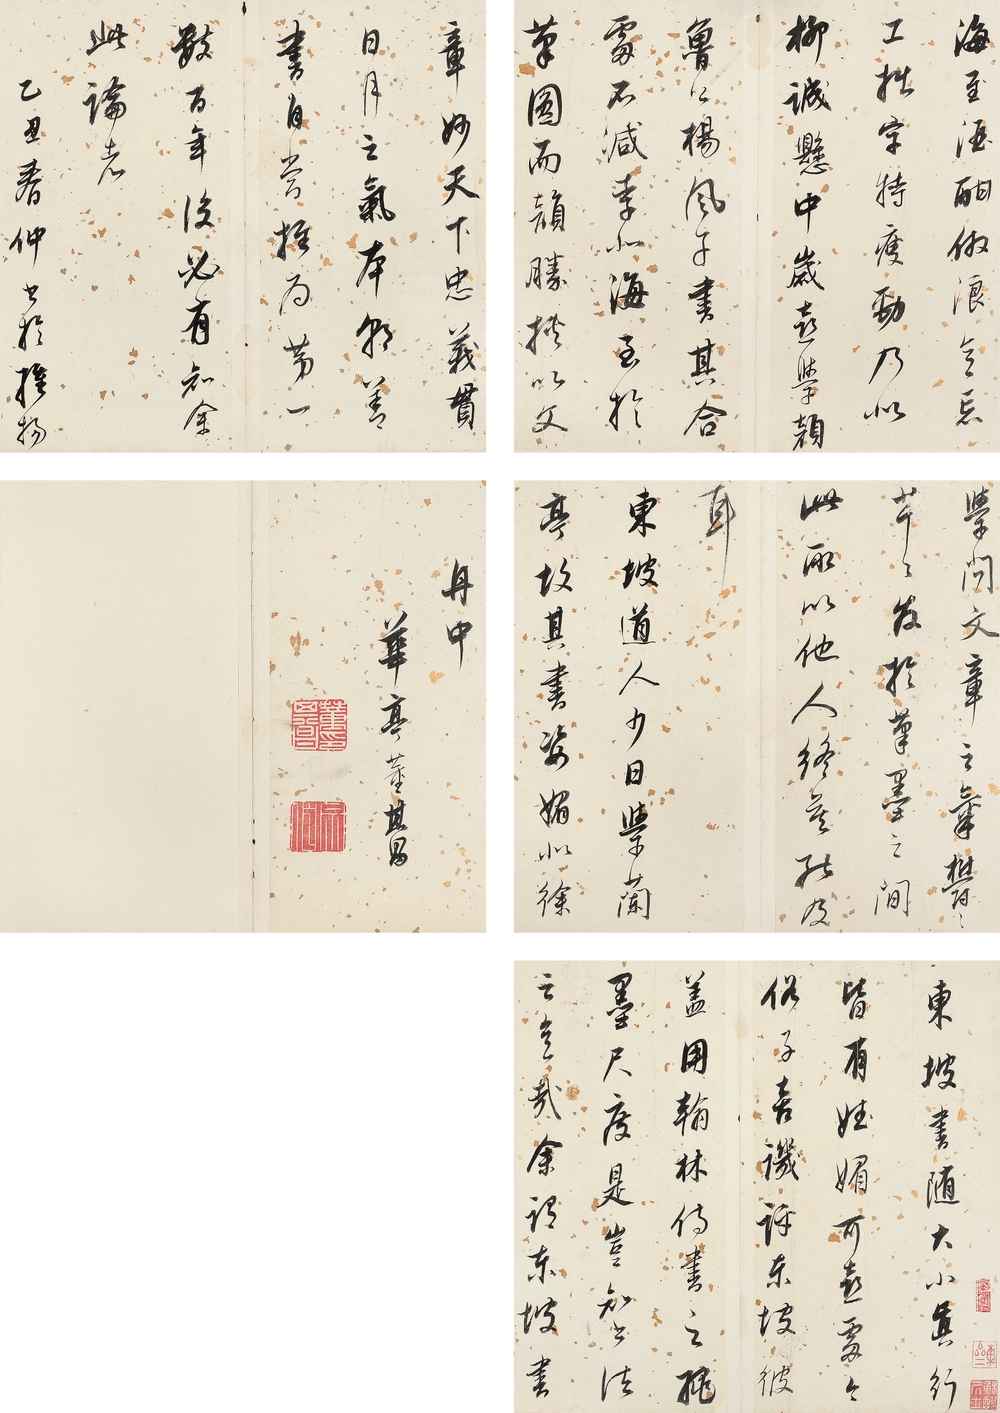 東坡書随大小真行
皆有娬媚可喜處今
俗子喜譏評東坡彼
盖用翰林侍書之繩
墨尺度是豈知書法
之意哉余謂東坡書
學問文章之氣欝々
芊々發於筆墨之間
此所以他人終莫能及
耳
東坡道人少日學蘭
亭故其書姿媚似徐
海至酒酣放浪意忘
工拙字特瘦勁乃似
柳誠懸中歲喜學顏
魯公楊風子書其合
處不減李北海至於
筆圓而韻勝挾以文
章妙天下忠義貫
日月之氣本朝善
書自當推為第一
數百年後必有知余
此論者
乙丑春仲書於維揚
舟中
華亭董其昌